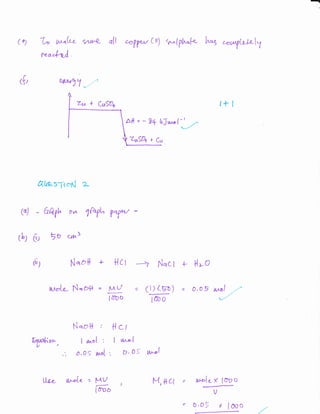 (e) To make sure all copper (II) sulphate has completely
reacted.
(f) energy
Zn + CuSO4
1 + 1
ΔH = - 84 kJ mol-1
ZnSO4 + Cu
QUESTION 2
(a) - Graph on graph paper -
(b) (i) 50 cm3
(ii) NaOH + HCl → NaCl + H2O
mole NaOH = MV = (1)(50) = 0.05 mol
1000 1000
NaOH : HCl
Equation, 1 mol : 1 mol
∴ 0.05 mol : 0.05 mol
Use mole = MV , M, HCl = mole x 1000
1000 V
= 0.05 x 1000